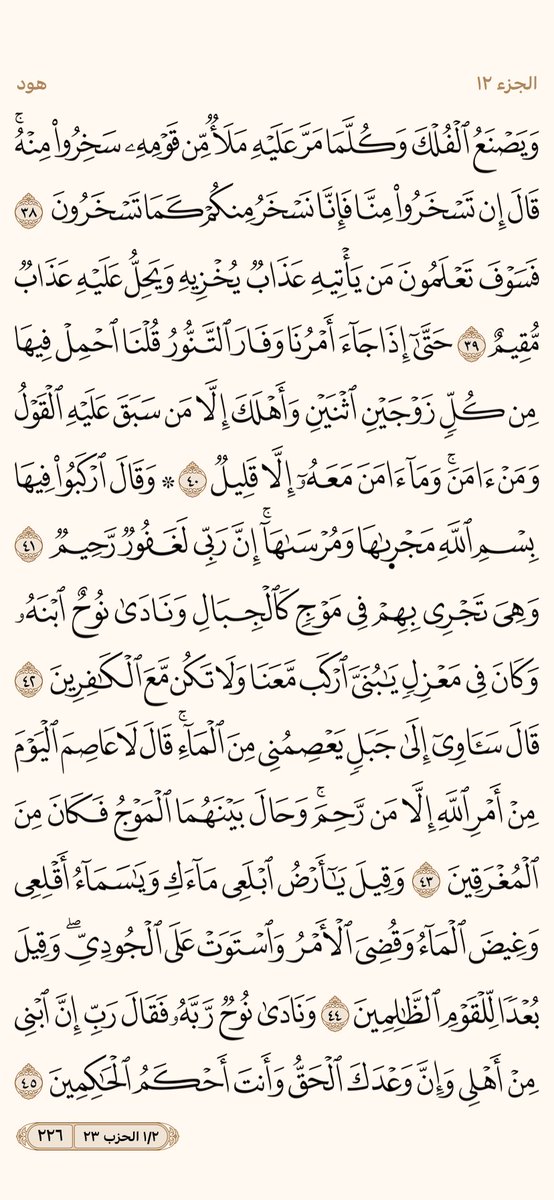 الجزء ١٢
هود
وَيَصۡنَعُ ٱلۡفُلۡكَ وَكُلَّمَا مَرَّ عَلَيۡهِ مَلَأٞ مِّن قَوۡمِهِۦ سَخِرُواْ مِنۡهُۚ
قَالَ إِن تَسۡخَرُواْ مِنَّا فَإِنَّا نَسۡخَرُ مِنكُمۡ كَمَا تَسۡخَرُونَ ٣٨
فَسَوۡفَ تَعۡلَمُونَ مَن يَأۡتِيهِ عَذَابٞ يُخۡزِيهِ وَيَحِلُّ عَلَيۡهِ عَذَابٞ
مُّقِيمٌ ٣٩ حَتَّىٰٓ إِذَا جَآءَ أَمۡرُنَا وَفَارَ ٱلتَّنُّورُ قُلۡنَا ٱحۡمِلۡ فِيهَا
مِن كُلّٖ زَوۡجَيۡنِ ٱثۡنَيۡنِ وَأَهۡلَكَ إِلَّا مَن سَبَقَ عَلَيۡهِ ٱلۡقَوۡلُ
وَمَنۡ ءَامَنَۚ وَمَآ ءَامَنَ مَعَهُۥٓ إِلَّا قَلِيلٞ ٤٠ ۞ وَقَالَ ٱرۡكَبُواْ فِيهَا
بِسۡمِ ٱللَّهِ مَجۡر۪ىٰهَا وَمُرۡسَىٰهَآۚ إِنَّ رَبِّي لَغَفُورٞ رَّحِيمٞ ٤١
وَهِيَ تَجۡرِي بِهِمۡ فِي مَوۡجٖ كَٱلۡجِبَالِ وَنَادَىٰ نُوحٌ ٱبۡنَهُۥ
وَكَانَ فِي مَعۡزِلٖ يَٰبُنَيَّ ٱرۡكَب مَّعَنَا وَلَا تَكُن مَّعَ ٱلۡكَٰفِرِينَ ٤٢
قَالَ سَـَٔاوِيٓ إِلَىٰ جَبَلٖ يَعۡصِمُنِي مِنَ ٱلۡمَآءِۚ قَالَ لَا عَاصِمَ ٱلۡيَوۡمَ
مِنۡ أَمۡرِ ٱللَّهِ إِلَّا مَن رَّحِمَۚ وَحَالَ بَيۡنَهُمَا ٱلۡمَوۡجُ فَكَانَ مِنَ
ٱلۡمُغۡرَقِينَ ٤٣ وَقِيلَ يَٰٓأَرۡضُ ٱبۡلَعِي مَآءَكِ وَيَٰسَمَآءُ أَقۡلِعِي
وَغِيضَ ٱلۡمَآءُ وَقُضِيَ ٱلۡأَمۡرُ وَٱسۡتَوَتۡ عَلَى ٱلۡجُودِيِّۖ وَقِيلَ
بُعۡدٗا لِّلۡقَوۡمِ ٱلظَّٰلِمِينَ ٤٤ وَنَادَىٰ نُوحٞ رَّبَّهُۥ فَقَالَ رَبِّ إِنَّ ٱبۡنِي
مِنۡ أَهۡلِي وَإِنَّ وَعۡدَكَ ٱلۡحَقُّ وَأَنتَ أَحۡكَمُ ٱلۡحَٰكِمِينَ ٤٥
١/٢ الحزب ٢٣ ٢٢٦